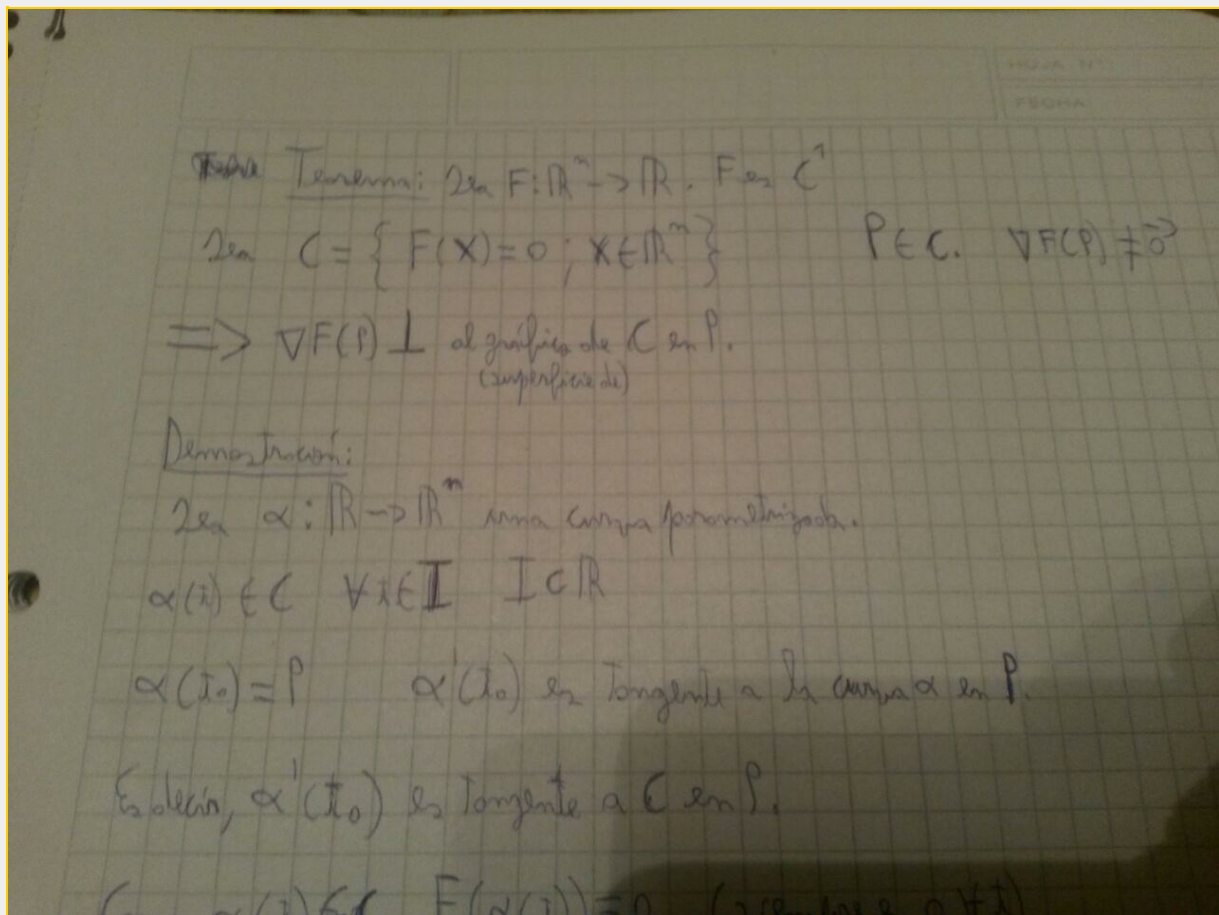 HOJA Nº
FECHA
Teorema: Sea F: ℝⁿ -> ℝ. F es C¹
Sea C = { F(X) = 0 ; X ∈ ℝⁿ } P ∈ C. ∇F(P) ≠ 0⃗
=> ∇F(P) ⊥ al gráfico de C en P.
(superficie de)
Demostración:
Sea α: ℝ -> ℝⁿ una curva parametrizada.
α(t) ∈ C ∀t ∈ I I ⊂ ℝ
α(t₀) = P α'(t₀) es tangente a la curva α en P.
Es decir, α'(t₀) es tangente a C en P.
α(t) ∈ C F(α(t)) = 0